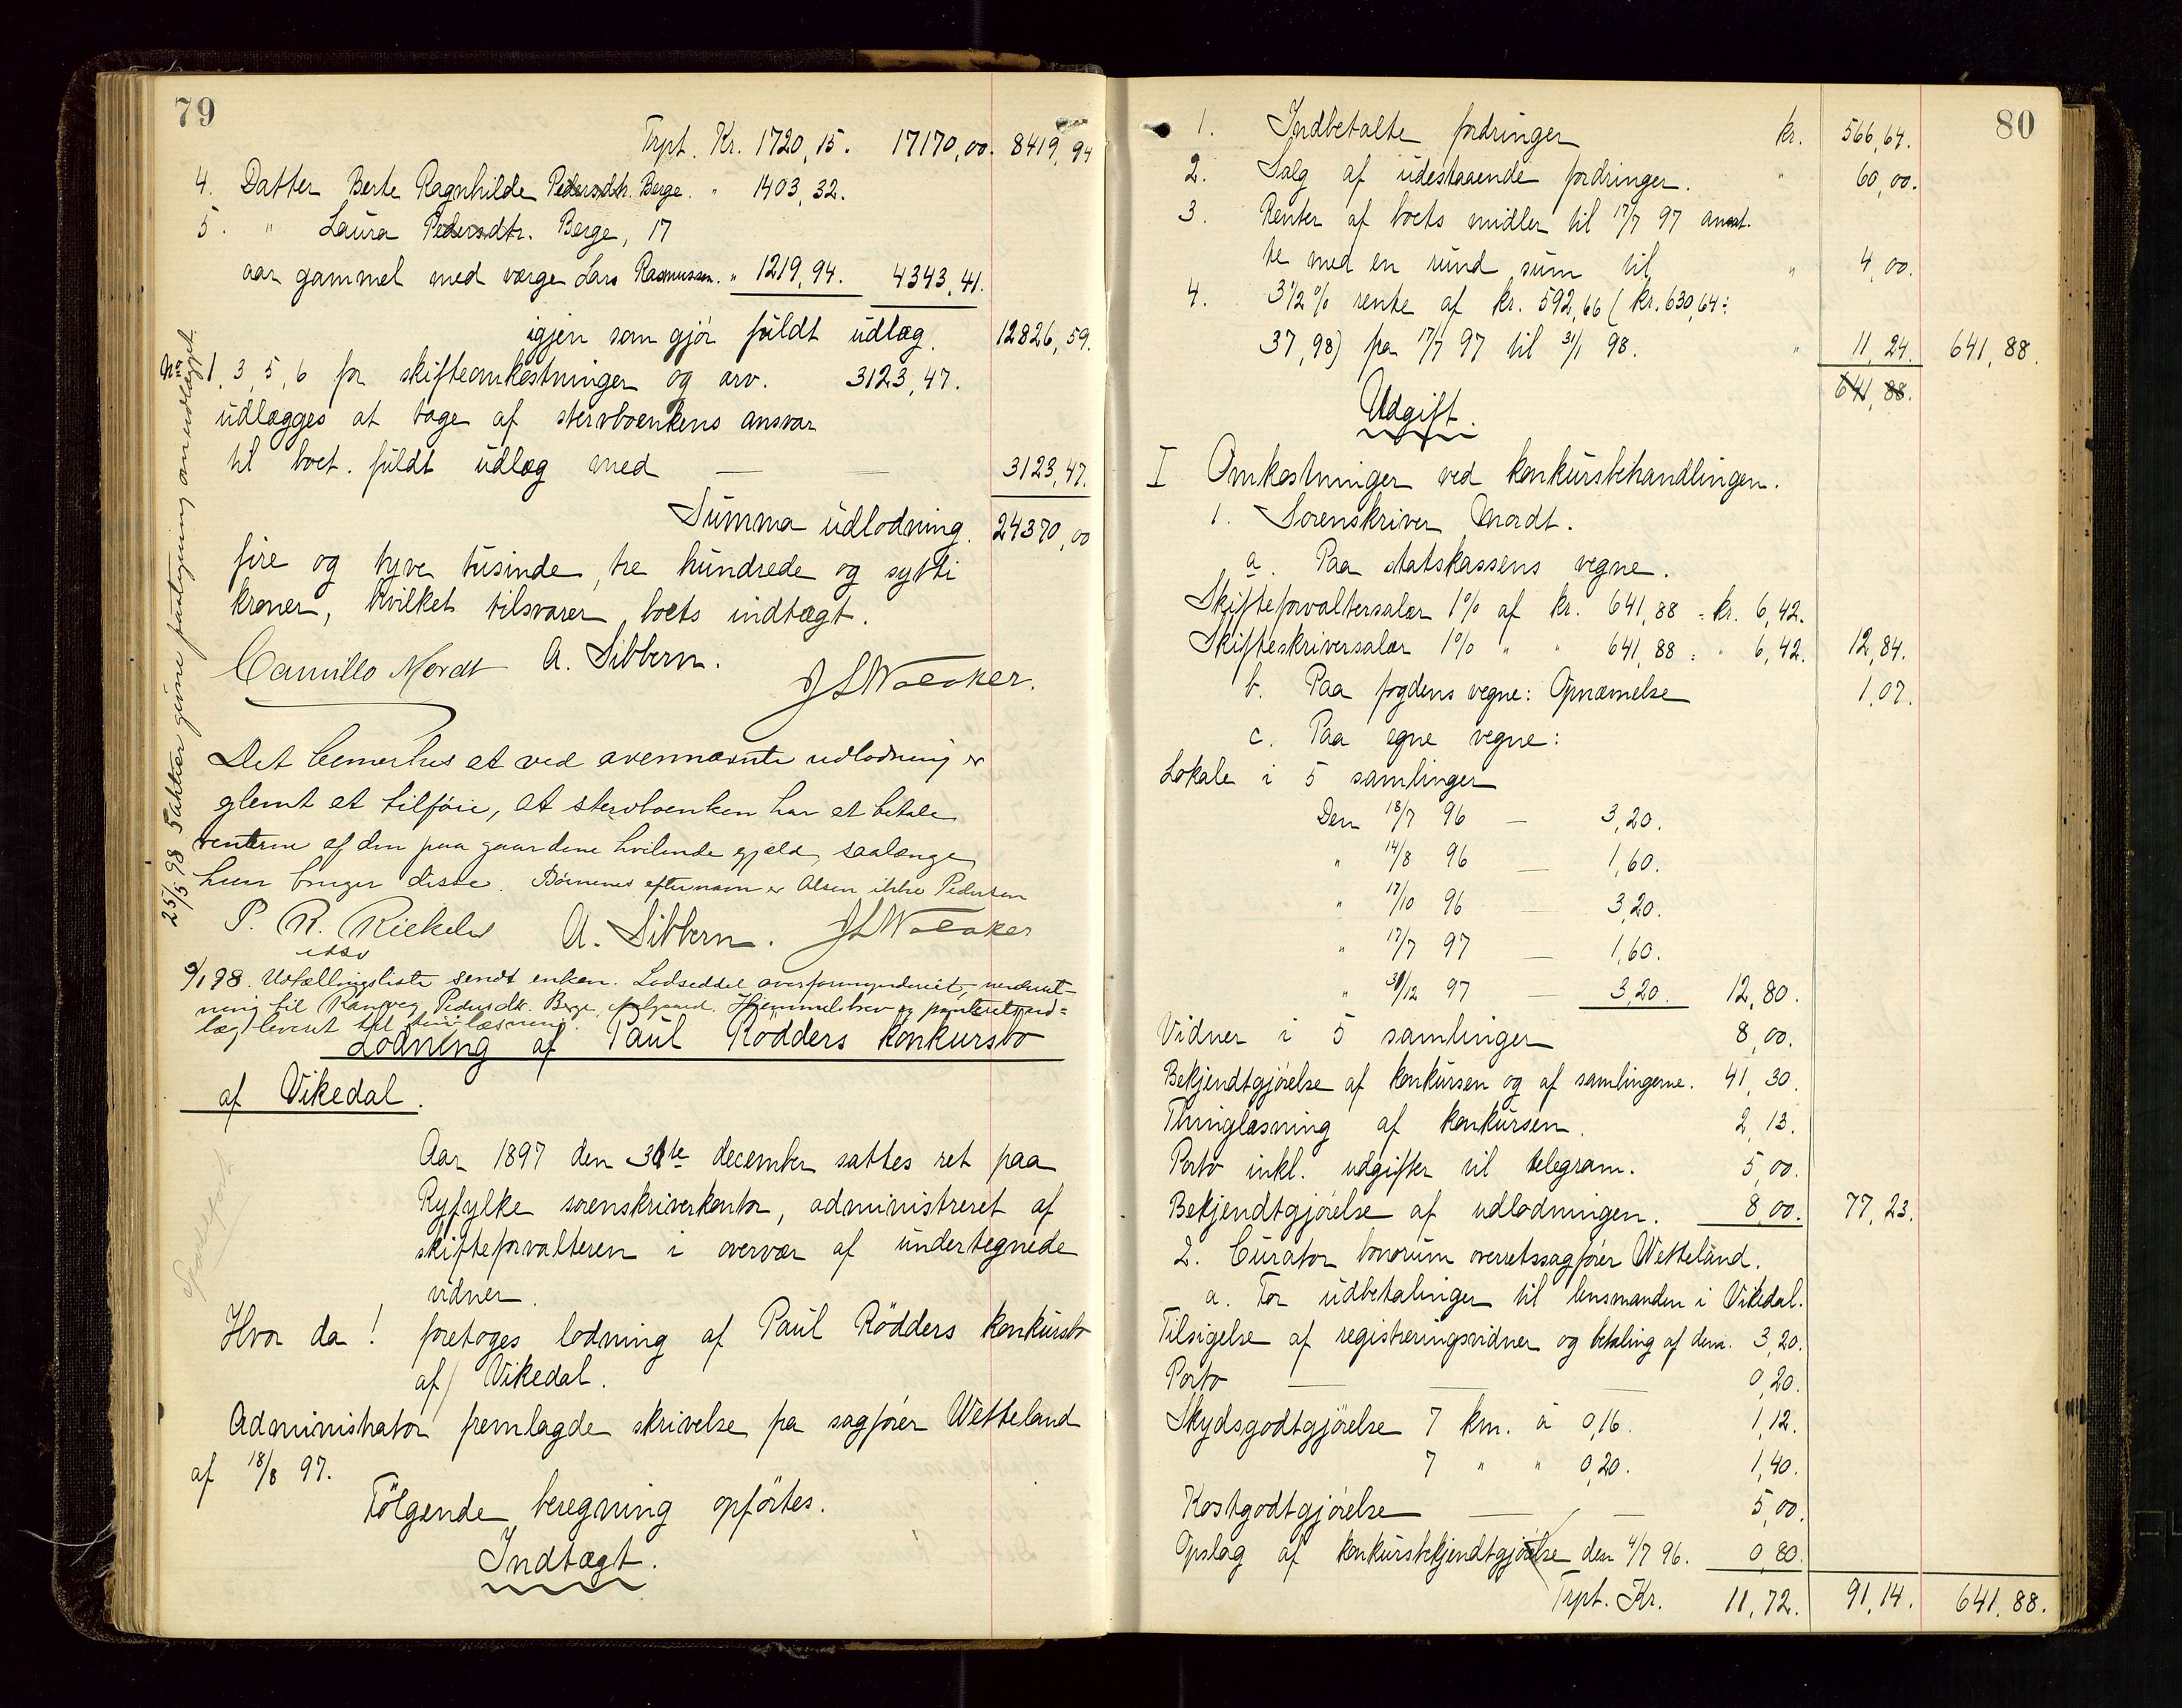 79
Trpt. Kr. 1720,15. 17170,00. 8419,94
4. Datter Berte Ragnhilde Pedersdtr. Berge. " 1403,32.
5. " Laura Pedersdtr. Berge, 17
aar gammel med værge Lars Rasmussen. " 1219,94. 4343,41.
igjen som gjør fuldt udlæg. 12826,59.
No 1, 3, 5, 6 for skifteomkostninger og arv. 3123,47.
udlægges at tage af stervboenkens ansvar
til boet. fuldt udlæg med — — 3123,47.
Summa udlodning. 24370,00
fire og tyve tusinde, tre hundrede og sytti
kroner, hvilket tilsvarer boets indtægt.
Camillo Mordt A. Sibbern.
Det bemerkes at ved ovennævnte udlodning er
glemt at tilføie, at stervboenken har at betale
renterne af den paa gaardene hvilende gjæld, saalænge
hun bruger disse. Børnenes efternavn er Olsen ikke Pedersen
A. Sibbern.
9/1 98. Udfællingsliste sendt enken. Lodseddel overformynderiet,
ning til Pedersdtr. Berge, Hjemmelsbrev og
læg leveret til tinglæsning.
Lodning af Paul Rödders konkursbo
af Vikedal.
Aar 1897 den 31te december sattes ret paa
Ryfylke sorenskriverkontor, administreret af
skifteforvalteren i overvær af undertegnede
vidner.
Hvor da! foretoges lodning af Paul Rödders konkursbo
af Vikedal.
Administrator fremlagde skrivelse fra sagfører Wetteland
af 18/8 97.
Følgende beregning opførtes.
Indtægt.
25/5 98 5 aktier
80
1. Indbetalte fordringer kr. 566,64.
2. Salg af udestaaende fordringer. " 60,00.
3. Renter af boets midler til 17/7 97 ansat.
te med en rund sum til " 4,00.
4. 3 1/2 % rente af kr. 592,66 (kr. 630,64 ÷
37,98) fra 17/7 97 til 31/1 98. " 11,24. 641,88.
641,88.
Udgift.
I Omkostninger ved konkursbehandlingen.
1. Sorenskriver Mordt.
a. Paa statskassens vegne.
Skifteforvaltersalær 1% af kr. 641,88 = kr. 6,42.
Skifteskriversalær 1% " " 641,88 = " 6,42. 12,84.
b. Paa fogdens vegne: Opnævnelse 1,07.
c. Paa egne vegne:
Lokale i 5 samlinger
Den 18/7 96 — 3,20.
" 14/8 96 — 1,60.
" 17/10 96 — 3,20.
" 17/7 97 — 1,60.
" 31/12 97 — 3,20. 12,80.
Vidner i 5 samlinger 8,00.
Bekjendtgjørelse af konkursen og af samlingerne. 41,30.
Thinglæsning af konkursen. 2,13.
Porto inkl. udgifter til telegram. 5,00.
Bekjendtgjørelse af udlodningen. 8,00. 77,23.
2. Curator bonorum overretssagfører Wetteland.
a. For udbetalinger til lensmanden i Vikedal.
Tilsigelse af registreringsvidner og betaling af dem. 3,20.
Porto — — — 0,20.
Skydsgodtgjørelse 7 km. à 0,16. 1,12.
7 " " 0,20. 1,40.
Kostgodtgjørelse — — 5,00.
Opslag af konkursbekjendtgjørelse den 4/7 96. 0,80.
Trpt. Kr. 11,72. 91,14. 641,88.